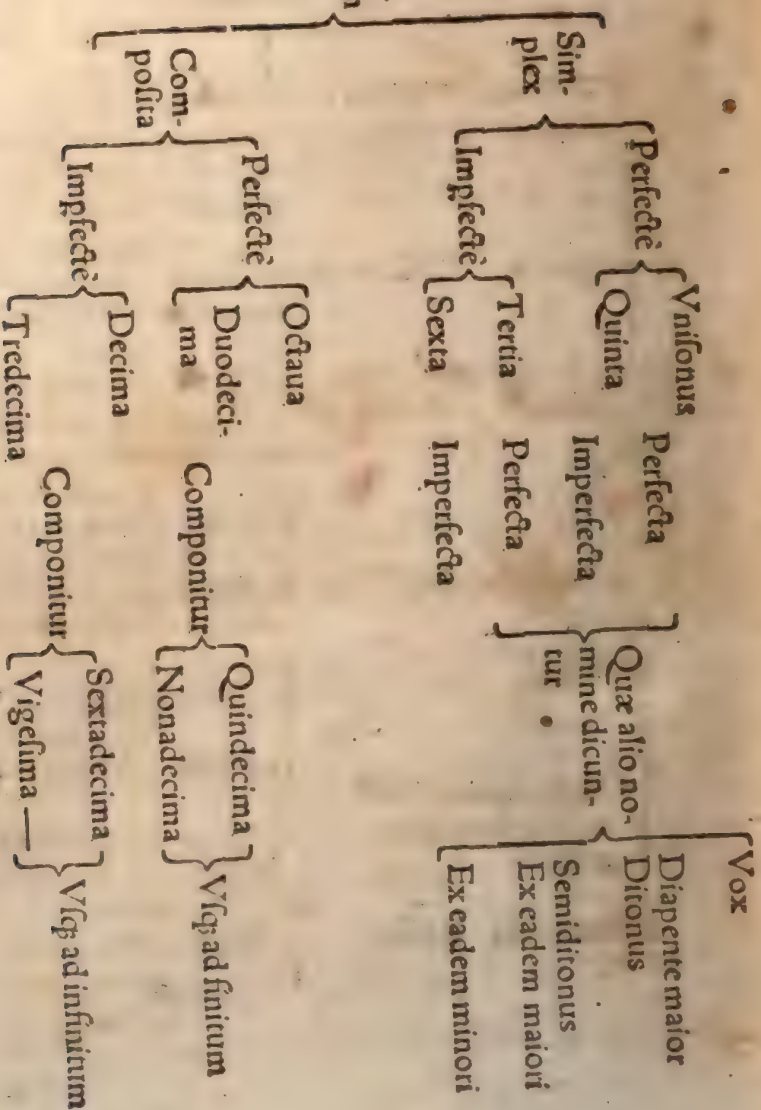 Sim-
plex
Perfectè
Vniſonus
Quinta
Imꝑfectè
Tertia
Sexta
Perfecta
Imperfecta
Perfecta
Imperfecta
Quæ alio no-
mine dicun-
tur
Vox
Diapente maior
Ditonus
Semiditonus
Ex eadem maiori
Ex eadem minori
Com-
poſita
Perfectè
Octaua
Duodeci-
ma
Componitur
Quindecima
Nonadecima
Vſq; ad finitum
Imꝑfectè
Decima
Tredecima
Componitur
Sextadecima
Vigeſima —
Vſq; ad infinitum